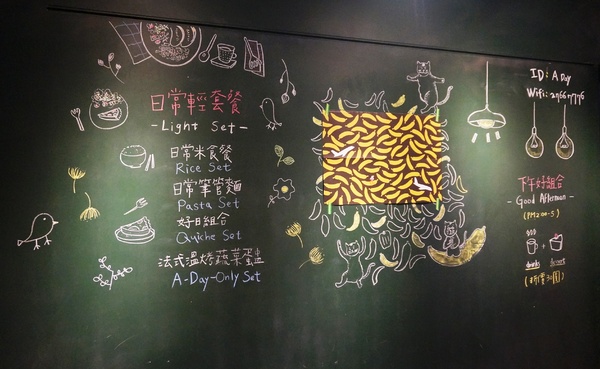 日常輕套餐
- Light Set -
日常米食餐
Rice Set
日常筆管麵
Pasta Set
好日組合
Quiche Set
法式溫烤蔬菜蛋盅
A-Day-Only Set
ID: A Day
Wifi: 27667776
下午好組合
- Good Afternoon -
(PM2:00-5)
drinks
dessert